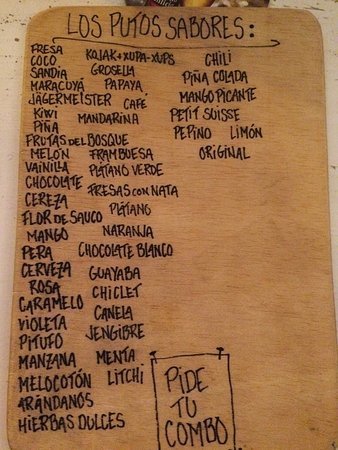 LOS PUTOS SABORES:
FRESA
COCO
SANDÍA
MARACUYÁ
JÄGERMEISTER
KIWI
PIÑA
FRUTAS DEL BOSQUE
MELÓN
VAINILLA
CHOCOLATE
CEREZA
FLOR DE SAUCO
MANGO
PERA
CERVEZA
ROSA
CARAMELO
VIOLETA
PITUFO
MANZANA
MELOCOTÓN
ARÁNDANOS
HIERBAS DULCES
KOJAK + XUPA-XUPS
GROSELLA
PAPAYA
CAFÉ
MANDARINA
FRAMBUESA
PLÁTANO VERDE
FRESAS CON NATA
PLÁTANO
NARANJA
CHOCOLATE BLANCO
GUAYABA
CHICLET
CANELA
JENGIBRE
MENTA
LITCHI
CHILI
PIÑA COLADA
MANGO PICANTE
PETIT SUISSE
PEPINO LIMÓN
ORIGINAL
PIDE
TU
COMBO